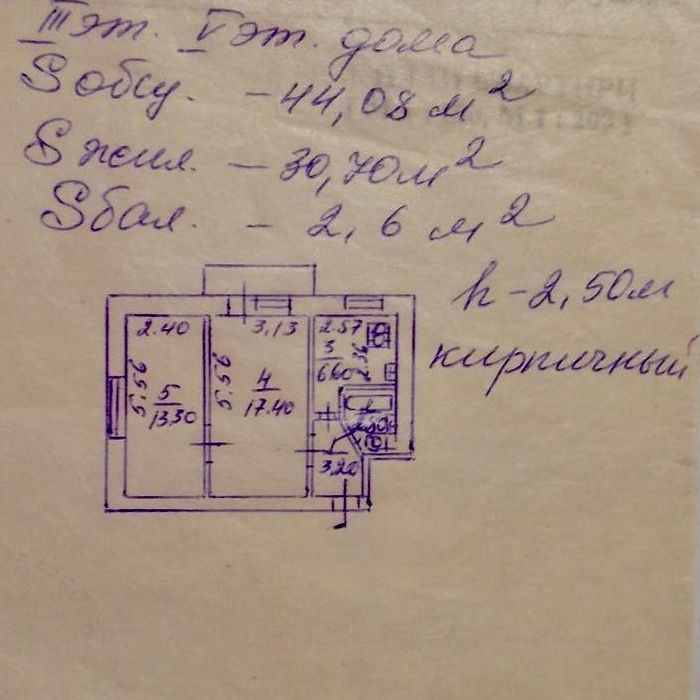 III эт. V эт. дома
S общ. - 44,08 м²
S жил. - 30,70 м²
S бал. - 2,6 м²
h - 2,50м
кирпичный
2.40 3.13 2.57
5.56 5.56 3 2.36
6.60
5 4
13.30 17.40
3.20